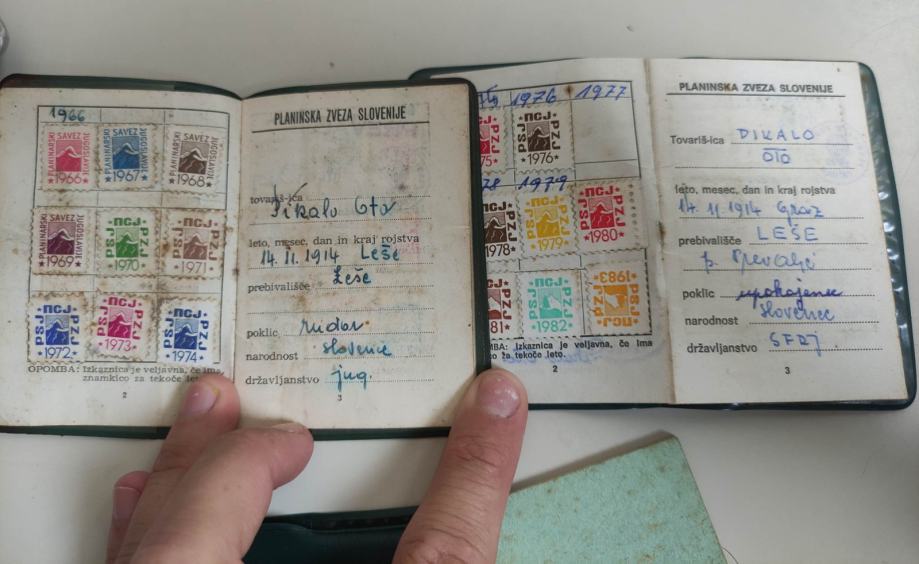 1966
PLANINARSKI SAVEZ JUGOSLAVIJE
1966
PLANINARSKI SAVEZ JUGOSLAVIJE
1967
PLANINARSKI SAVEZ JUGOSLAVIJE
1968
PLANINARSKI SAVEZ JUGOSLAVIJE
1969
PSJ ПСЈ PZJ
1970
PSJ ПСЈ PZJ
1971
PSJ ПСЈ PZJ
1972
PSJ ПСЈ PZJ
1973
PSJ ПСЈ PZJ
1974
OPOMBA: Izkaznica je veljavna, če ima
znamkico za tekoče leto.
2
PLANINSKA ZVEZA SLOVENIJE
tovariš-ica
Pikalo Oto
leto, mesec, dan in kraj rojstva
14. 11. 1914 Leše
prebivališče Leše
poklic rudar
narodnost Slovenec
državljanstvo jug.
3
1976 1977
75
PSJ ПСЈ PZJ
1976
78 1979
978
PSJ ПСЈ PZJ
1979
PSJ ПСЈ PZJ
1980
81
PSJ ПСЈ PZJ
1982
PSJ ПСЈ PZJ
1983
MBA: Izkaznica je veljavna, če ima
co za tekoče leto.
2
PLANINSKA ZVEZA SLOVENIJE
Tovariš-ica PIKALO
OTO
leto, mesec, dan in kraj rojstva
14. 11. 1914 Graz
prebivališče LEŠE
p. Prevalje
poklic upokojenec
narodnost Slovenec
državljanstvo SFRJ
3